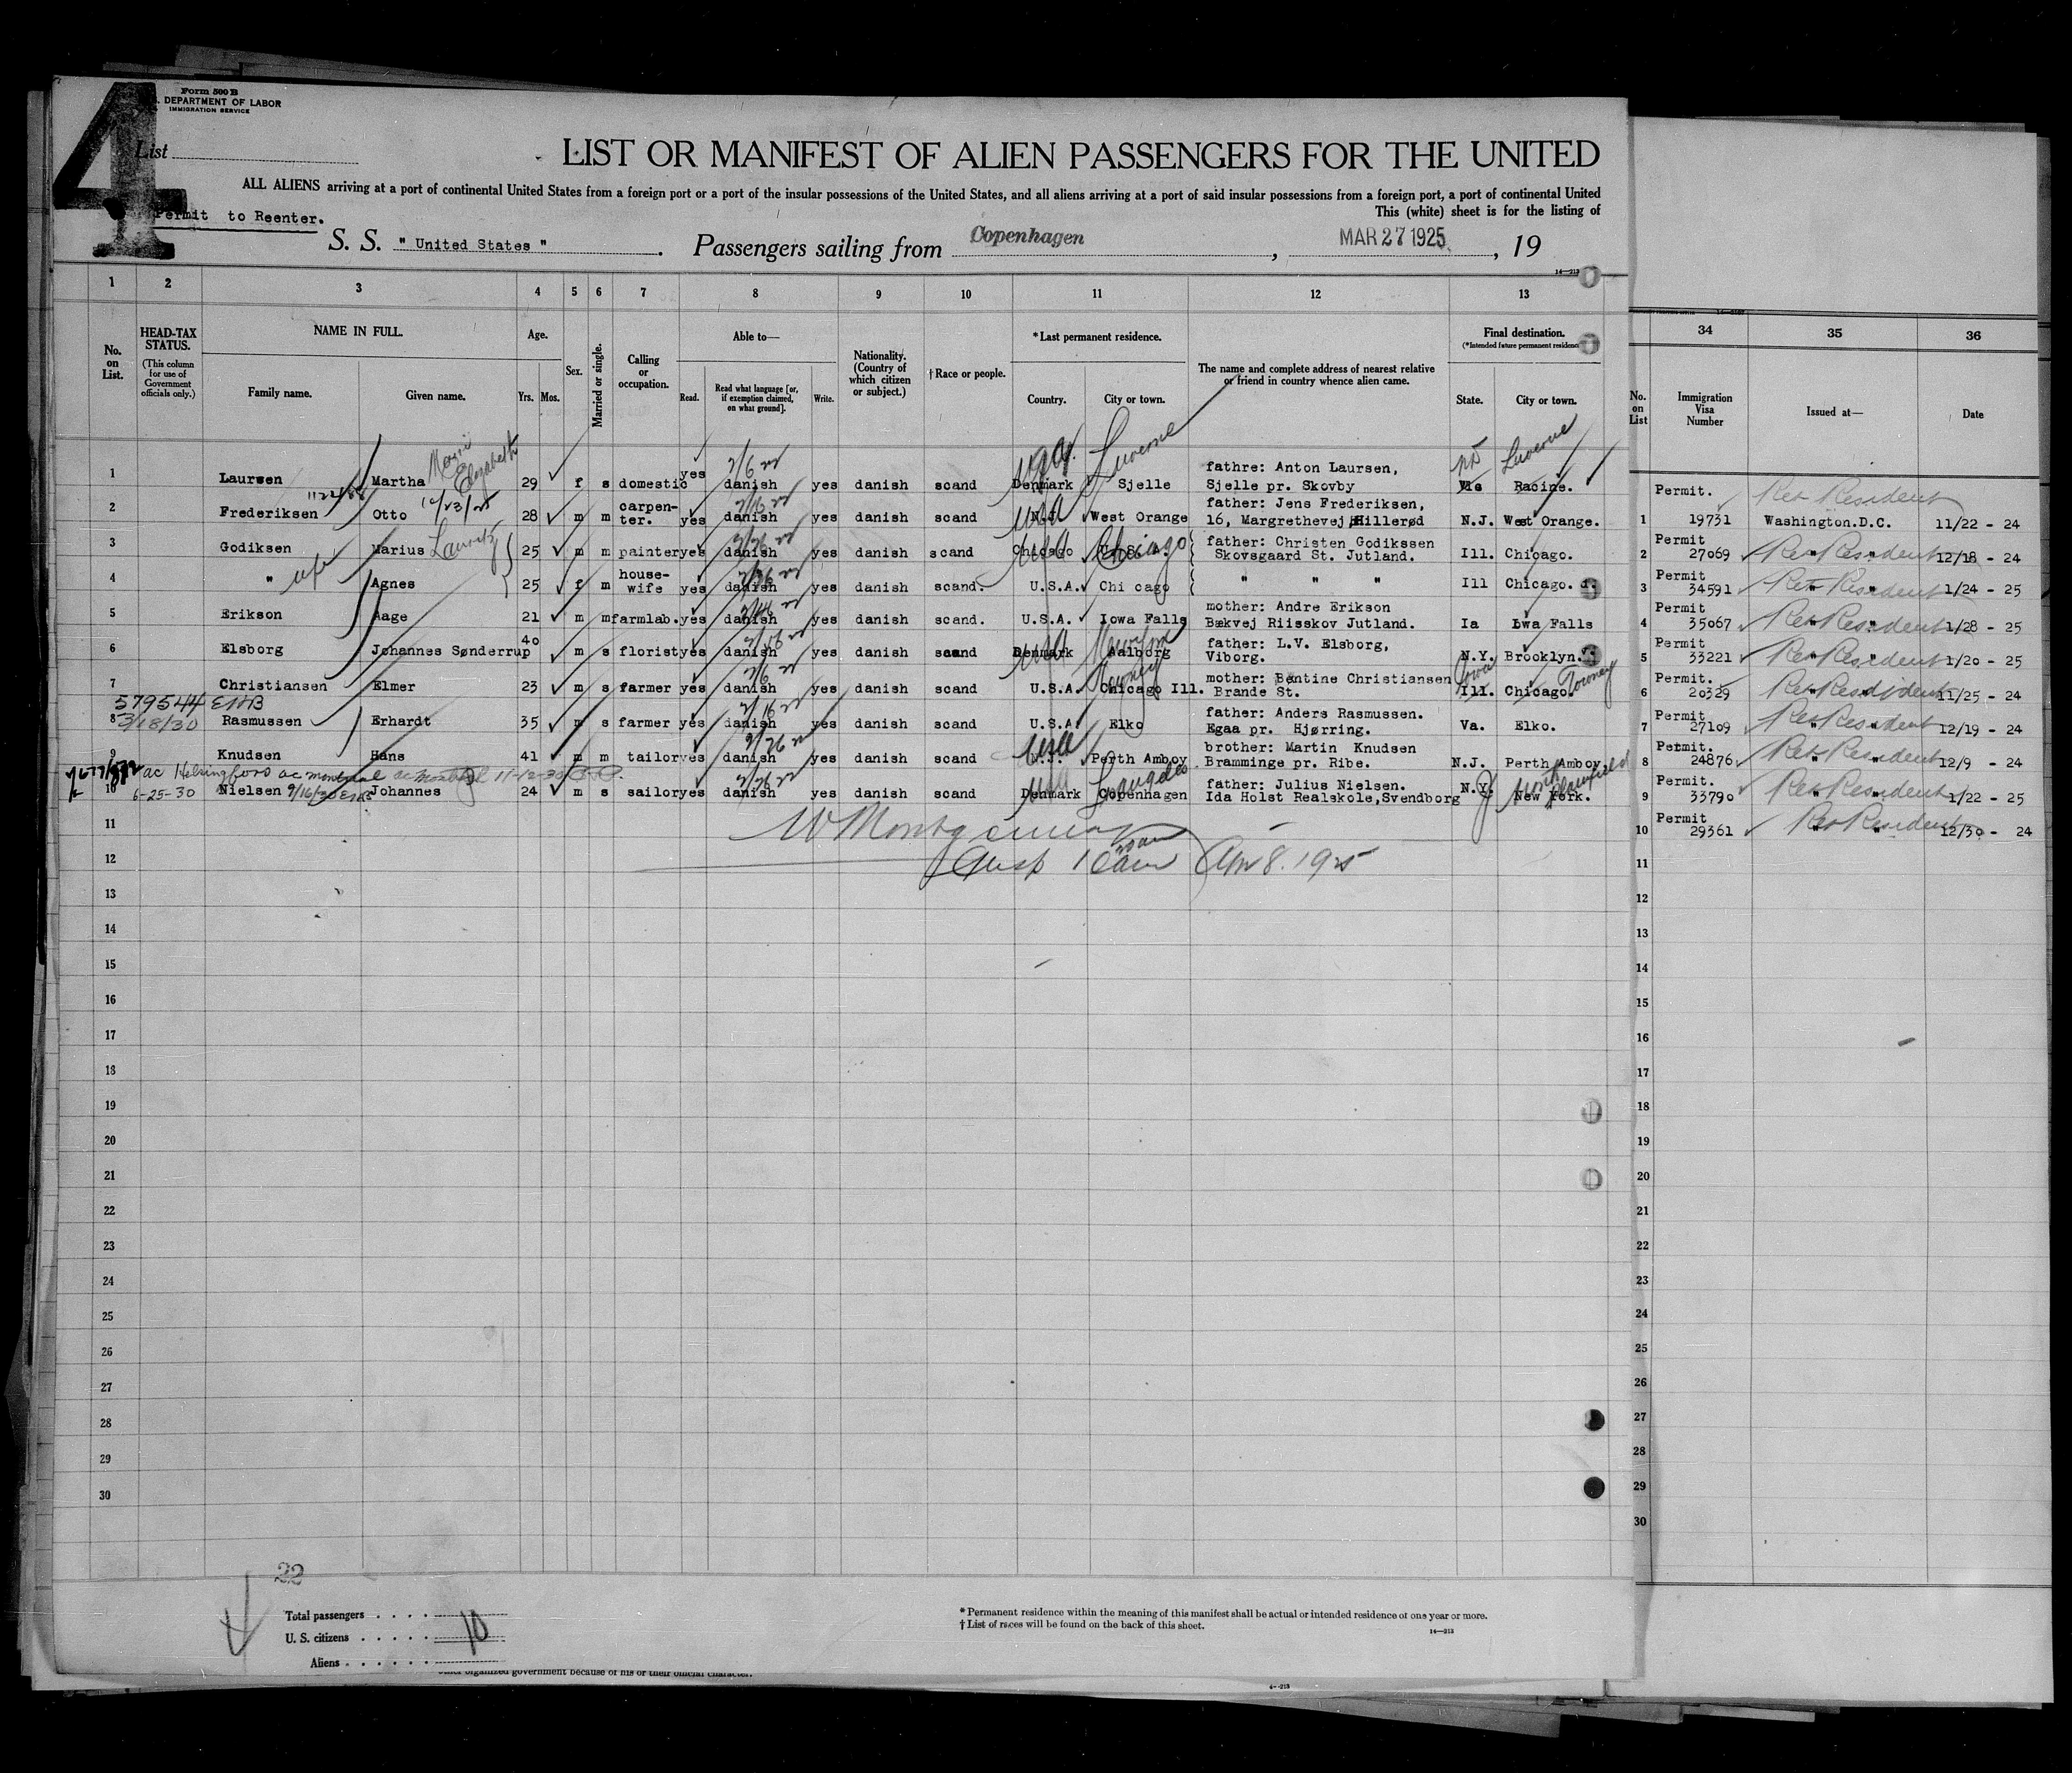 4
Form 500 B
DEPARTMENT OF LABOR
IMMIGRATION SERVICE
List
LIST OR MANIFEST OF ALIEN PASSENGERS FOR THE UNITED
ALL ALIENS arriving at a port of continental United States from a foreign port or a port of the insular possessions of the United States, and all aliens arriving at a port of said insular possessions from a foreign port, a port of continental United
This (white) sheet is for the listing of
Permit to Reenter.
S. S. " United States " . Passengers sailing from Copenhagen , MAR 27 1925 , 19
14—213
1 2 3 4 5 6 7 8 9 10 11 12 13
No. on List.
HEAD-TAX STATUS.
(This column for use of Government officials only.)
NAME IN FULL.
Family name. Given name.
Age.
Yrs. Mos.
Sex.
Married or single.
Calling or occupation.
Able to—
Read. Read what language [or, if exemption claimed, on what ground]. Write.
Nationality. (Country of which citizen or subject.)
† Race or people.
* Last permanent residence.
Country. City or town.
The name and complete address of nearest relative or friend in country whence alien came.
Final destination.
(*Intended future permanent residence
State. City or town.
34 35 36
No. on List
Immigration Visa Number
Issued at—
Date
Marie Elizabeth Luverne Luverne
1 Laursen Martha 29 f s domestic yes danish yes danish scand Denmark Sjelle fathre: Anton Laursen, Sjelle pr. Skovby Racine.
2 Frederiksen Otto 28 m m carpen- ter. yes danish yes danish scand N.J. West Orange father: Jens Frederiksen, 16, Margrethevej Hillerød N.J. West Orange.
3 Godiksen Marius Lauritz 25 m m painter yes danish yes danish scand Chicago father: Christen Godikssen Skovsgaard St. Jutland. Ill. Chicago.
4 " Agnes 25 f m house- wife yes danish yes danish scand. U.S.A. Chi cago " " " Ill Chicago.
5 Erikson Aage 21 m m farmlab. yes danish yes danish scand. U.S.A. Iowa Falls mother: Andre Erikson Bækvej Riisskov Jutland. Ia Iwa Falls
6 Elsborg Johannes Sønderrup 40 m s florist yes danish yes danish scand Denmark Aalborg father: L.V. Elsborg, Viborg. N.Y. Brooklyn.
7 Christiansen Elmer 23 m s farmer yes danish yes danish scand U.S.A. Chicago Ill. mother: Bentine Christiansen Brande St. Ill. Chicago.
579544
3/18/30
8 Rasmussen Erhardt 35 m s farmer yes danish yes danish scand U.S.A. Elko father: Anders Rasmussen. Egaa pr. Hjørring. Va. Elko.
9 Knudsen Hans 41 m m tailor yes danish yes danish scand N.J. Perth Amboy brother: Martin Knudsen Bramminge pr. Ribe. N.J. Perth Amboy
ac Helsingfors ac montreal
10 6-25-30 Nielsen Johannes 24 m s sailor yes danish yes danish scand Denmark Copenhagen father: Julius Nielsen. Ida Holst Realskole, Svendborg N.Y. New York.
W Montgomery
Apr 8. 1925
11
12
13
14
15
16
17
18
19
20
21
22
23
24
25
26
27
28
29
30
Permit.
1 19731 Washington.D.C. 11/22 - 24
Permit
2 27069 Ret Resident 12/18 - 24
Permit
3 34591 Ret Resident 1/24 - 25
Permit
4 35067 Ret Resident 1/28 - 25
Permit.
5 33221 Ret Resident 1/20 - 25
Permit.
6 20329 Ret Resident 11/25 - 24
Permit
7 27109 Ret Resident 12/19 - 24
Permit.
8 24876 Ret Resident 12/9 - 24
Permit.
9 33790 Ret Resident 1/22 - 25
Permit
10 29361 Ret Resident 12/30 - 24
11
12
13
14
15
16
17
18
19
20
21
22
23
24
25
26
27
28
29
30
22
Total passengers
U. S. citizens 10
Aliens
* Permanent residence within the meaning of this manifest shall be actual or intended residence of one year or more.
† List of races will be found on the back of this sheet.
14—213
organized government because of his or their official character.